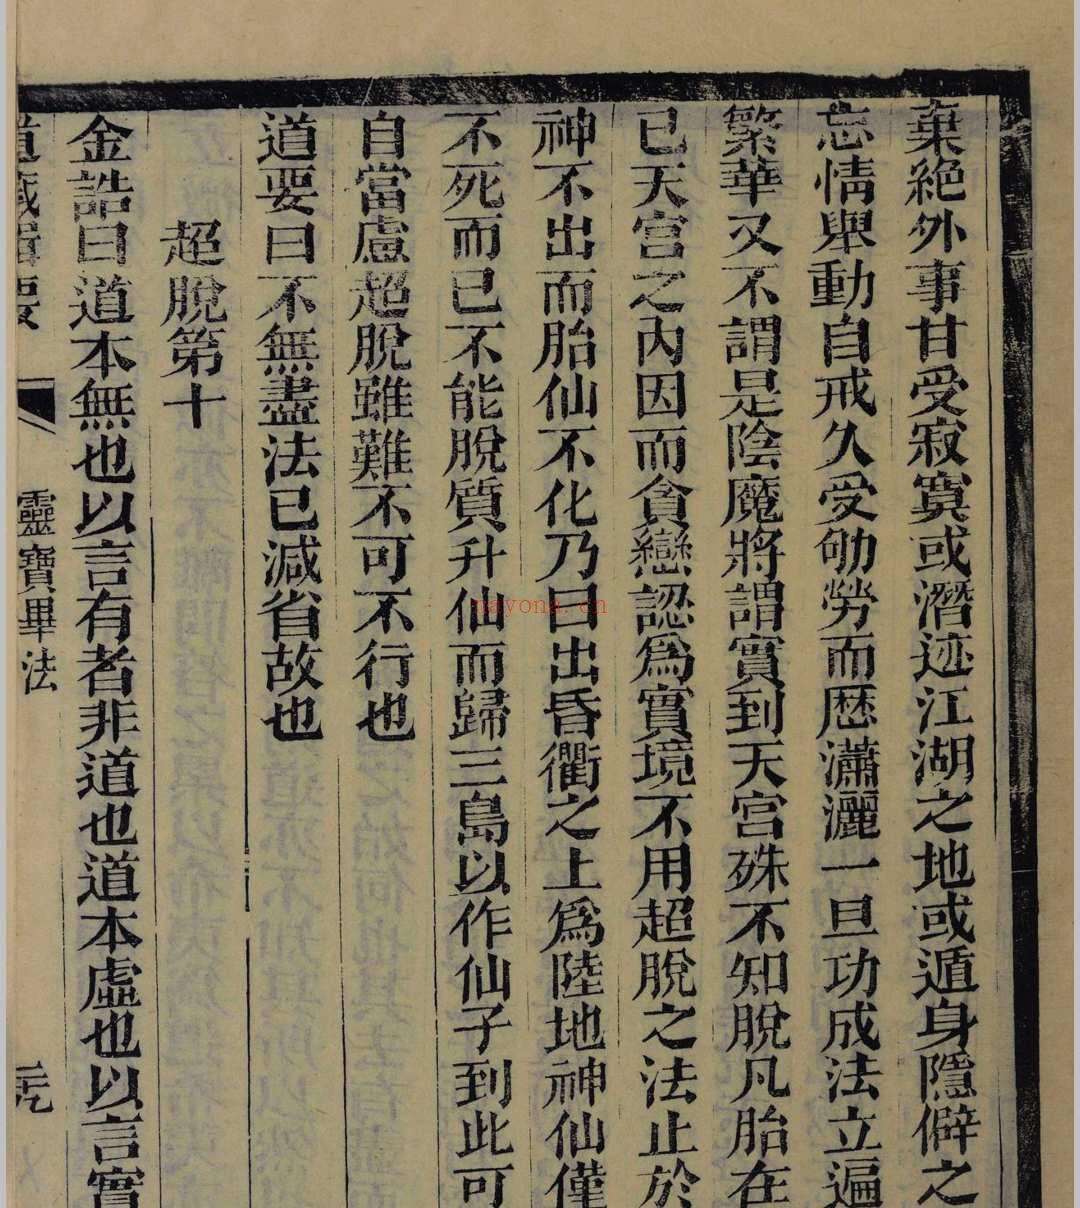 棄絕外事甘受寂寞或潛迹江湖之地或遁身隱僻之
忘情舉動自戒久受劬勞而歷瀟灑一旦功成法立遍
繁華又不謂是陰魔將謂實到天宮殊不知脫凡胎在
已天宮之內因而貪戀認爲實境不用超脫之法止於
神不出而胎仙不化乃曰出昏衢之上爲陸地神仙僅
不死而已不能脫質升仙而歸三島以作仙子到此可
自當慮超脫雖難不可不行也
道要曰不無盡法已減省故也
超脫第十
金誥曰道本無也以言有者非道也道本虛也以言實
道藏輯要
靈寶畢法